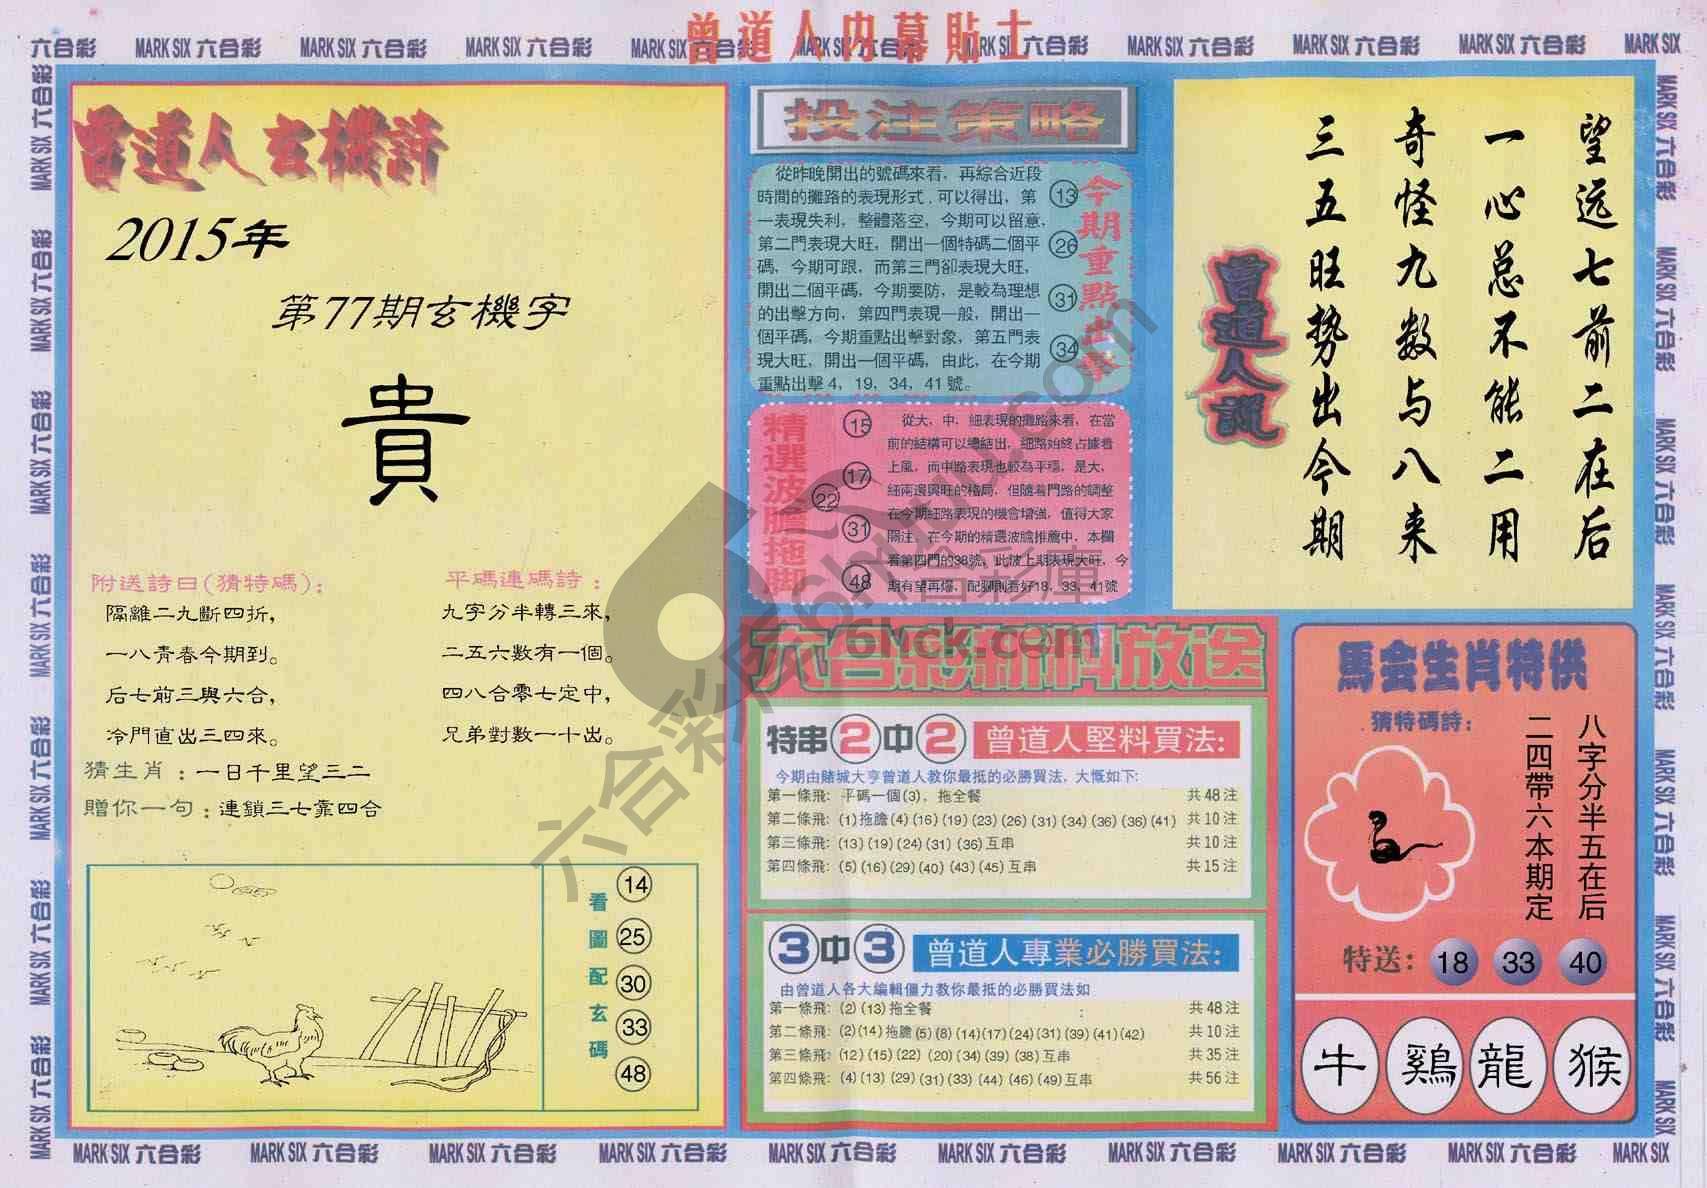 曾道人内幕貼士
六合彩 MARK SIX 六合彩 MARK SIX 六合彩 MARK SIX 六合彩 MARK SIX 六合彩 MARK SIX 六合彩 MARK SIX 六合彩 MARK SIX 六合彩 MARK SIX 六合彩 MARK SIX 六合彩 MARK SIX
曾道人玄機詩
2015年
第77期玄機字
貴
附送詩曰(猜特碼):
隔離二九斷四折,
一八青春今期到。
后七前三與六合,
冷門直出三四來。
平碼連碼詩:
九字分半轉三來,
二五六數有一個。
四八合零七定中,
兄弟對數一十出。
猜生肖:一日千里望三二
贈你一句:連鎖三七靠四合
看圖配玄碼
14
25
30
33
48
投注策略
從昨晚開出的號碼來看,再綜合近段
時間的攤路的表現形式,可以得出,第
一表現失利,整體落空,今期可以留意,
第二門表現大旺,開出一個特碼二個平
碼,今期可跟,而第三門卻表現大旺,
開出二個平碼,今期要防,是較為理想
的出擊方向,第四門表現一般,開出一
個平碼,今期重點出擊對象,第五門表
現大旺,開出一個平碼,由此,在今期
重點出擊 4, 19, 34, 41 號。
13
26
31
34
今期重點出擊
精選波膽拖脚
15
17
22
31
48
從大、中,細表現的攤路來看,在當
前的結構可以總結出,細路始終占據着
上風,而中路表現也較為平穩,是大,
細兩邊興旺的格局,但隨着門路的調整
在今期細路表現的機會增強,值得大家
關注,在今期的精選波膽推薦中,本欄
看第四門的38號,此波上期表現大旺,今
期有望再爆,配腳則看好18,33,41號
六合彩新料放送
特串2中2 曾道人堅料買法:
今期由賭城大亨曾道人教你最抵的必勝買法,大慨如下:
第一條飛: 平碼一個(3),拖全餐 共48注
第二條飛: (1)拖膽(4)(16)(19)(23)(26)(31)(34)(36)(36)(41) 共10注
第三條飛: (13)(19)(24)(31)(36)互串 共10注
第四條飛: (5)(16)(29)(40)(43)(45)互串 共15注
3中3 曾道人專業必勝買法:
由曾道人各大編輯僵力教你最抵的必勝買法如
第一條飛: (2)(13)拖全餐 共48注
第二條飛: (2)(14)拖膽(5)(8)(14)(17)(24)(31)(39)(41)(42) 共10注
第三條飛: (12)(15)(22)(20)(34)(39)(38)互串 共35注
第四條飛: (4)(13)(29)(31)(33)(44)(46)(49)互串 共56注
望远七前二在后
一心总不能二用
奇怪九数与八来
三五旺势出今期
曾道人説
馬会生肖特供
猜特碼詩:
八字分半五在后
二四帶六本期定
特送: 18 33 40
牛 鷄 龍 猴
MARK SIX 六合彩 MARK SIX 六合彩 MARK SIX 六合彩 MARK SIX 六合彩 MARK SIX 六合彩 MARK SIX 六合彩 MARK SIX 六合彩 MARK SIX 六合彩 MARK SIX 六合彩 MARK SIX
6hck.com